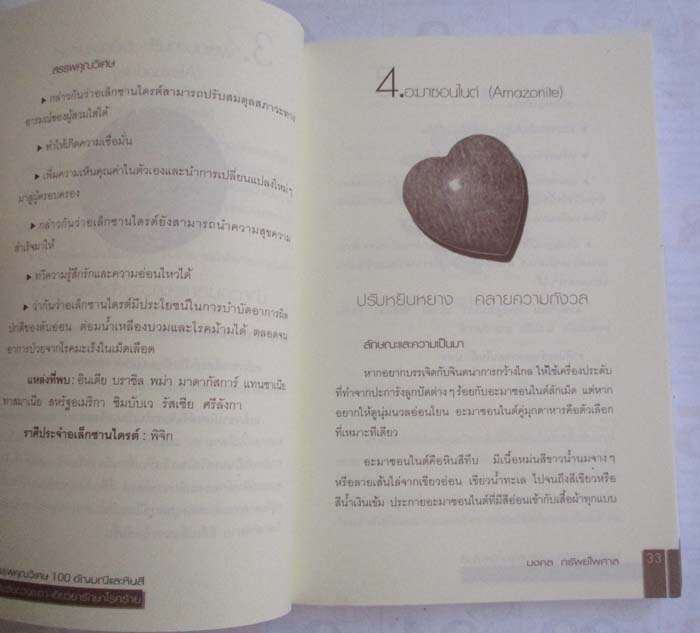 สรรพคุณวิเศษ
▸ กล่าวกันว่าอเล็กซานไดรต์สามารถปรับสมดุลสภาวะทาง
อารมณ์ของผู้สวมใส่ได้
▸ ทำให้เกิดความเชื่อมั่น
▸ เพิ่มความเห็นคุณค่าในตัวเองและนำการเปลี่ยนแปลงใหม่ๆ
มาสู่ผู้ครอบครอง
▸ กล่าวกันว่าอเล็กซานไดรต์ยังสามารถนำความสุขความ
สำเร็จมาให้
▸ ทวีความรู้สึกรักและความอ่อนไหวได้
▸ ว่ากันว่าอเล็กซานไดรต์มีประโยชน์ในการบำบัดอาการผิด
ปกติของตับอ่อน ต่อมน้ำเหลืองบวมและโรคม้ามได้ ตลอดจน
อาการป่วยจากโรคมะเร็งในเม็ดเลือด
แหล่งที่พบ : อินเดีย บราซิล พม่า มาดากัสการ์ แทนซาเนีย
ทาสมาเนีย สหรัฐอเมริกา ซิมบับเว รัสเซีย ศรีลังกา
ราศีประจำอเล็กซานไดรต์ : พิจิก
รรพคุณวิเศษ 100 อัญมณีและหินสี
4.อะมาซอนไนต์ (Amazonite)
ปรับหยินหยาง คลายความกังวล
ลักษณะและความเป็นมา
หากอยากบรรเจิดกับจินตนาการกว้างไกล ให้ใช้เครื่องประดับ
ที่ทำจากปะการังลูกปัดต่างๆ ร้อยกับอะมาซอนไนต์สักเม็ด แต่หาก
อยากให้ดูนุ่มนวลอ่อนโยน อะมาซอนไนต์คู่มุกดาหารคือตัวเลือก
ที่เหมาะทีเดียว
อะมาซอนไนต์คือหินสีทึบ มีเนื้อหม่นสีขาวน้ำนมจางๆ
หรือลายเส้นไล่จากเขียวอ่อน เขียวน้ำทะเล ไปจนถึงสีเขียวหรือ
สีน้ำเงินเข้ม ประกายอะมาซอนไนต์ที่มีสีอ่อนเข้ากับเสื้อผ้าทุกแบบ
มงคล ทรัพย์ไพศาล 33